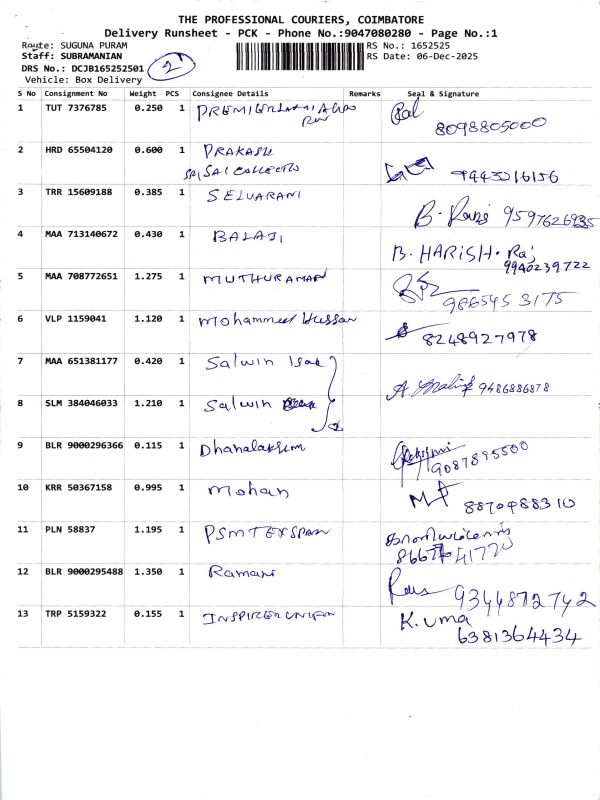 THE PROFESSIONAL COURIERS, COIMBATORE
Delivery Runsheet - PCK - Phone No.:9047080280 - Page No.:1
Route: SUGUNA PURAM RS No.: 1652525
Staff: SUBRAMANIAN RS Date: 06-Dec-2025
DRS No.: DCJB165252501 2
Vehicle: Box Delivery
S No Consignment No Weight PCS Consignee Details Remarks Seal & Signature
1 TUT 7376785 0.250 1
8098805000
2 HRD 65504120 0.600 1 PRAKASH
SRI SAI COLLECTIO 9943216156
3 TRR 15609188 0.385 1 SELVARANI
B. 9597626935
4 MAA 713140672 0.430 1 BALAJI B. HARISH. Raj
9940239722
5 MAA 708772651 1.275 1 MUTHURAMAN
9865453175
6 VLP 1159041 1.120 1 Mohammed Hussan
8248927978
7 MAA 651381177 0.420 1 Salwin Isak
A 9486886878
8 SLM 384046033 1.210 1 Salwin
9 BLR 9000296366 0.115 1 Dhanalakshmi
9087895500
10 KRR 50367158 0.995 1 Mohan
8870988310
11 PLN 58837 1.195 1 PSMTEXSPAN
8667741720
12 BLR 9000295488 1.350 1 Ramani
9344872742
13 TRP 5159322 0.155 1 K. Uma
6381364434